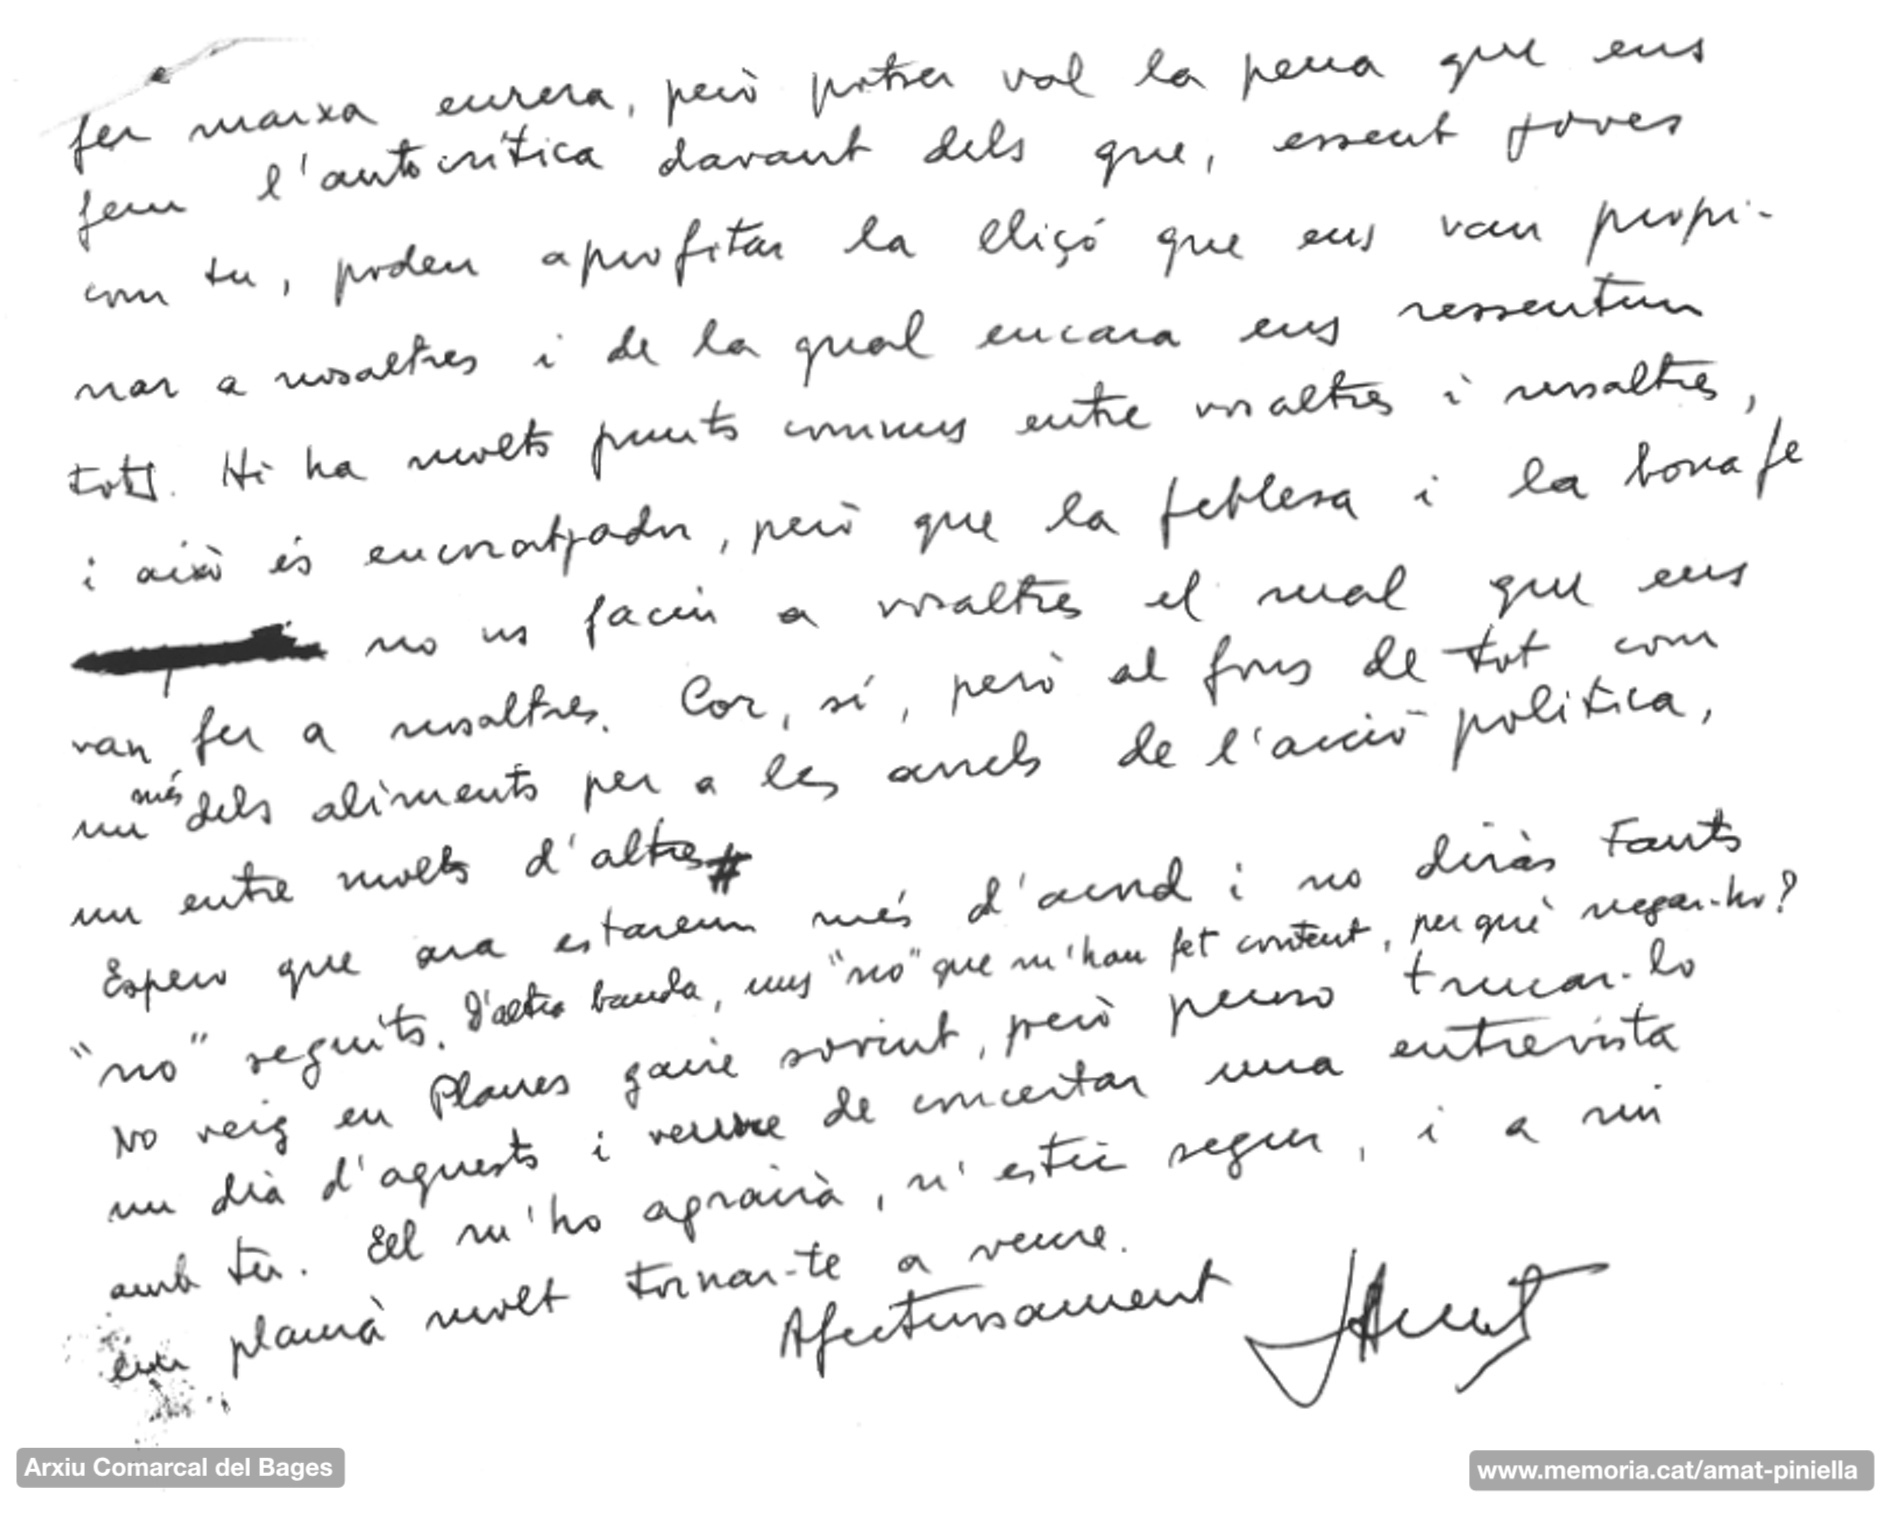 fer marxa enrera, però potser val la pena que ens
fem l'autocrítica davant dels que, essent joves
com tu, poden aprofitar la lliçó que ens van propi-
nar a nosaltres i de la qual encara ens ressentim
tots. Hi ha molts punts comuns entre vosaltres i nosaltres,
i això és encoratjador, però que la feblesa i la bona fe
no us facin a vosaltres el mal que ens
van fer a nosaltres. Cor, sí, però al fons de tot com
un més dels aliments per a les arrels de l'acció política,
un entre molts d'altres
Espero que ara estarem més d'acord i no diràs tants
"no" seguits. D'altra banda, uns "no" que m'han fet content, per què negar-ho?
No veig en Planes gaire sovint, però penso trucar-lo
un dia d'aquests i veure de concertar una entrevista
amb tu. Ell m'ho agrairà, n'estic segur, i a mi
em plaurà molt tornar-te a veure.
Afectuosament
JAmat
Arxiu Comarcal del Bages
www.memoria.cat/amat-piniella